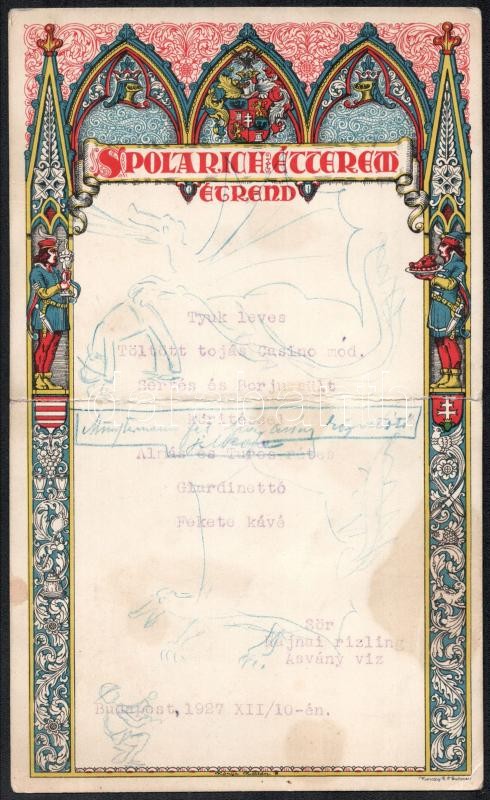 SPOLARICH ÉTTEREM
ÉTREND
Tyúk leves
Töltött tojás Casino mód.
Sertés és Borjusült
körítéssel
Almás és Turós rétes
Giardinettó
Fekete kávé
Sör
Rajnai rizling
Ásvány víz
Budapest, 1927 XII/10-én.